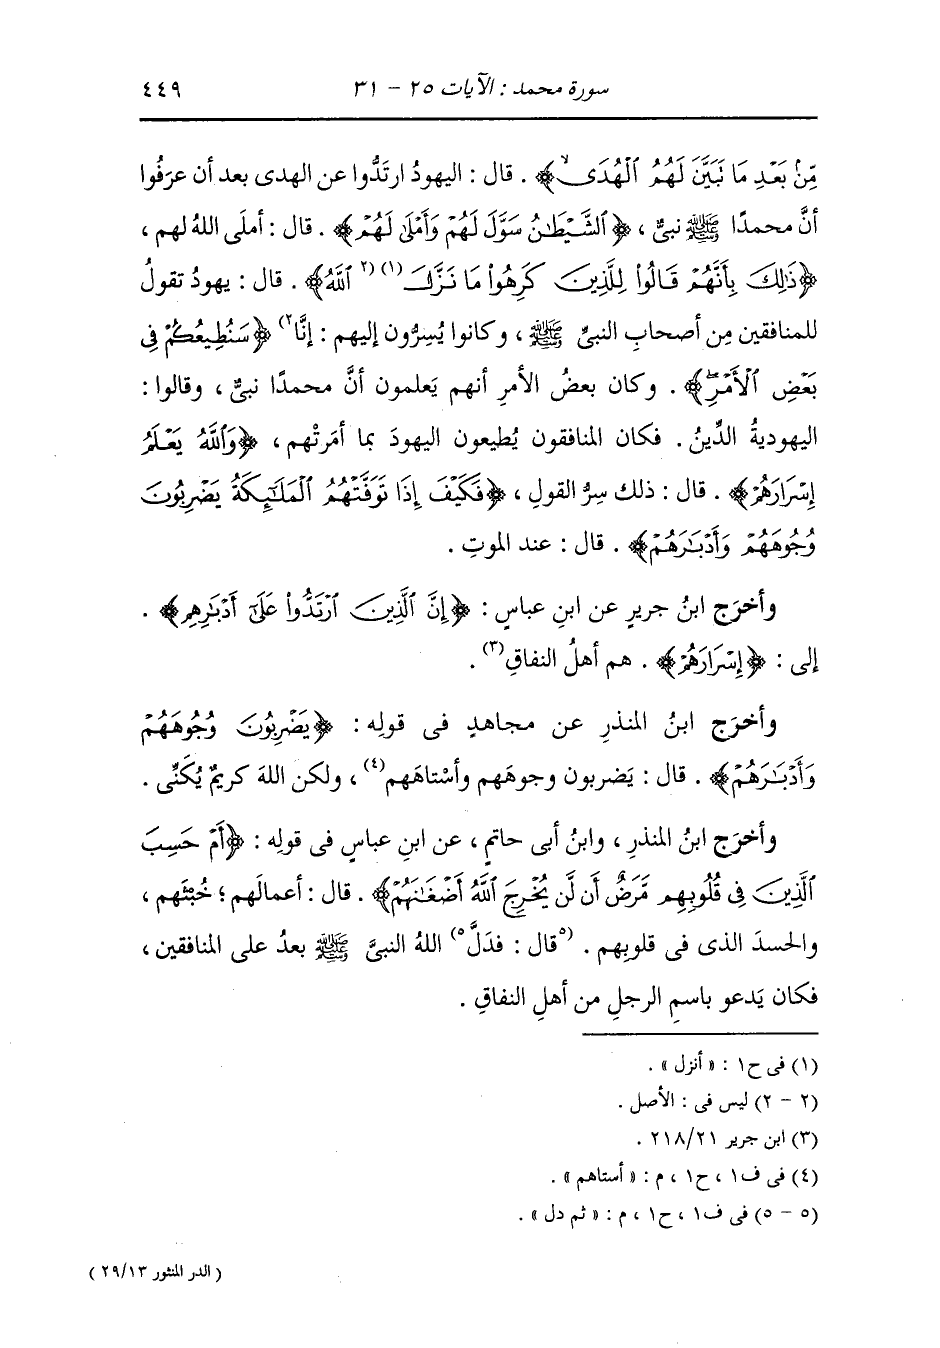 سورة محمد : الآيات ٢٥ - ٣١
٤٤٩
مِّنۢ بَعْدِ مَا تَبَيَّنَ لَهُمُ ٱلْهُدَىۙ﴾ . قال : اليهودُ ارتَدُّوا عن الهدى بعد أن عرَفُوا
أنَّ محمدًا ﷺ نبىٌّ ، ﴿ٱلشَّيْطَٰنُ سَوَّلَ لَهُمْ وَأَمْلَىٰ لَهُمْ﴾ . قال : أملَى اللهُ لهم ،
﴿ذَٰلِكَ بِأَنَّهُمْ قَالُوا۟ لِلَّذِينَ كَرِهُوا۟ مَا نَزَّلَ(١) (٢ٱللَّهُ﴾ . قال : يهودُ تقولُ
للمنافقين مِن أصحابِ النبىِّ ﷺ ، وكانوا يُسِرُّون إليهم : إنَّا٢) ﴿سَنُطِيعُكُمْ فِى
بَعْضِ ٱلْأَمْرِۖ﴾ . وكان بعضُ الأمرِ أنهم يَعلمون أنَّ محمدًا نبىٌّ ، وقالوا :
اليهوديةُ الدِّينُ . فكان المنافقون يُطيعون اليهودَ بما أمَرتْهم ، ﴿وَٱللَّهُ يَعْلَمُ
إِسْرَارَهُمْ﴾ . قال : ذلك سِرُّ القولِ ، ﴿فَكَيْفَ إِذَا تَوَفَّتْهُمُ ٱلْمَلَٰٓئِكَةُ يَضْرِبُونَ
وُجُوهَهُمْ وَأَدْبَٰرَهُمْ﴾ . قال : عند الموتِ .
وأخرَج ابنُ جريرٍ عن ابنِ عباسٍ : ﴿إِنَّ ٱلَّذِينَ ٱرْتَدُّوا۟ عَلَىٰٓ أَدْبَٰرِهِم﴾ .
إلى : ﴿إِسْرَارَهُمْ﴾ . هم أهلُ النفاقِ(٣) .
وأخرَج ابنُ المنذرِ عن مجاهدٍ فى قولِه : ﴿يَضْرِبُونَ وُجُوهَهُمْ
وَأَدْبَٰرَهُمْ﴾ . قال : يَضربون وجوهَهم وأسْتاهَهم(٤) ، ولكن اللهَ كريمٌ يُكَنِّى .
وأخرَج ابنُ المنذرِ ، وابنُ أبى حاتمٍ ، عن ابنِ عباسٍ فى قولِه : ﴿أَمْ حَسِبَ
ٱلَّذِينَ فِى قُلُوبِهِم مَّرَضٌ أَن لَّن يُخْرِجَ ٱللَّهُ أَضْغَٰنَهُمْ﴾ . قال : أعمالَهم ؛ خُبْثَهم ،
والحسدَ الذى فى قلوبِهم . (٥قال : فدَلَّ٥) اللهُ النبىَّ ﷺ بعدُ على المنافقين ،
فكان يَدعو باسمِ الرجلِ من أهلِ النفاقِ .
(١) فى ح١ : « أنزل » .
(٢ - ٢) ليس فى : الأصل .
(٣) ابن جرير ٢١/ ٢١٨ .
(٤) فى ف١ ، ح١ ، م : « أستاهم » .
(٥ - ٥) فى ف١ ، ح١ ، م : « ثم دل » .
( الدر المنثور ٢٩/١٣ )